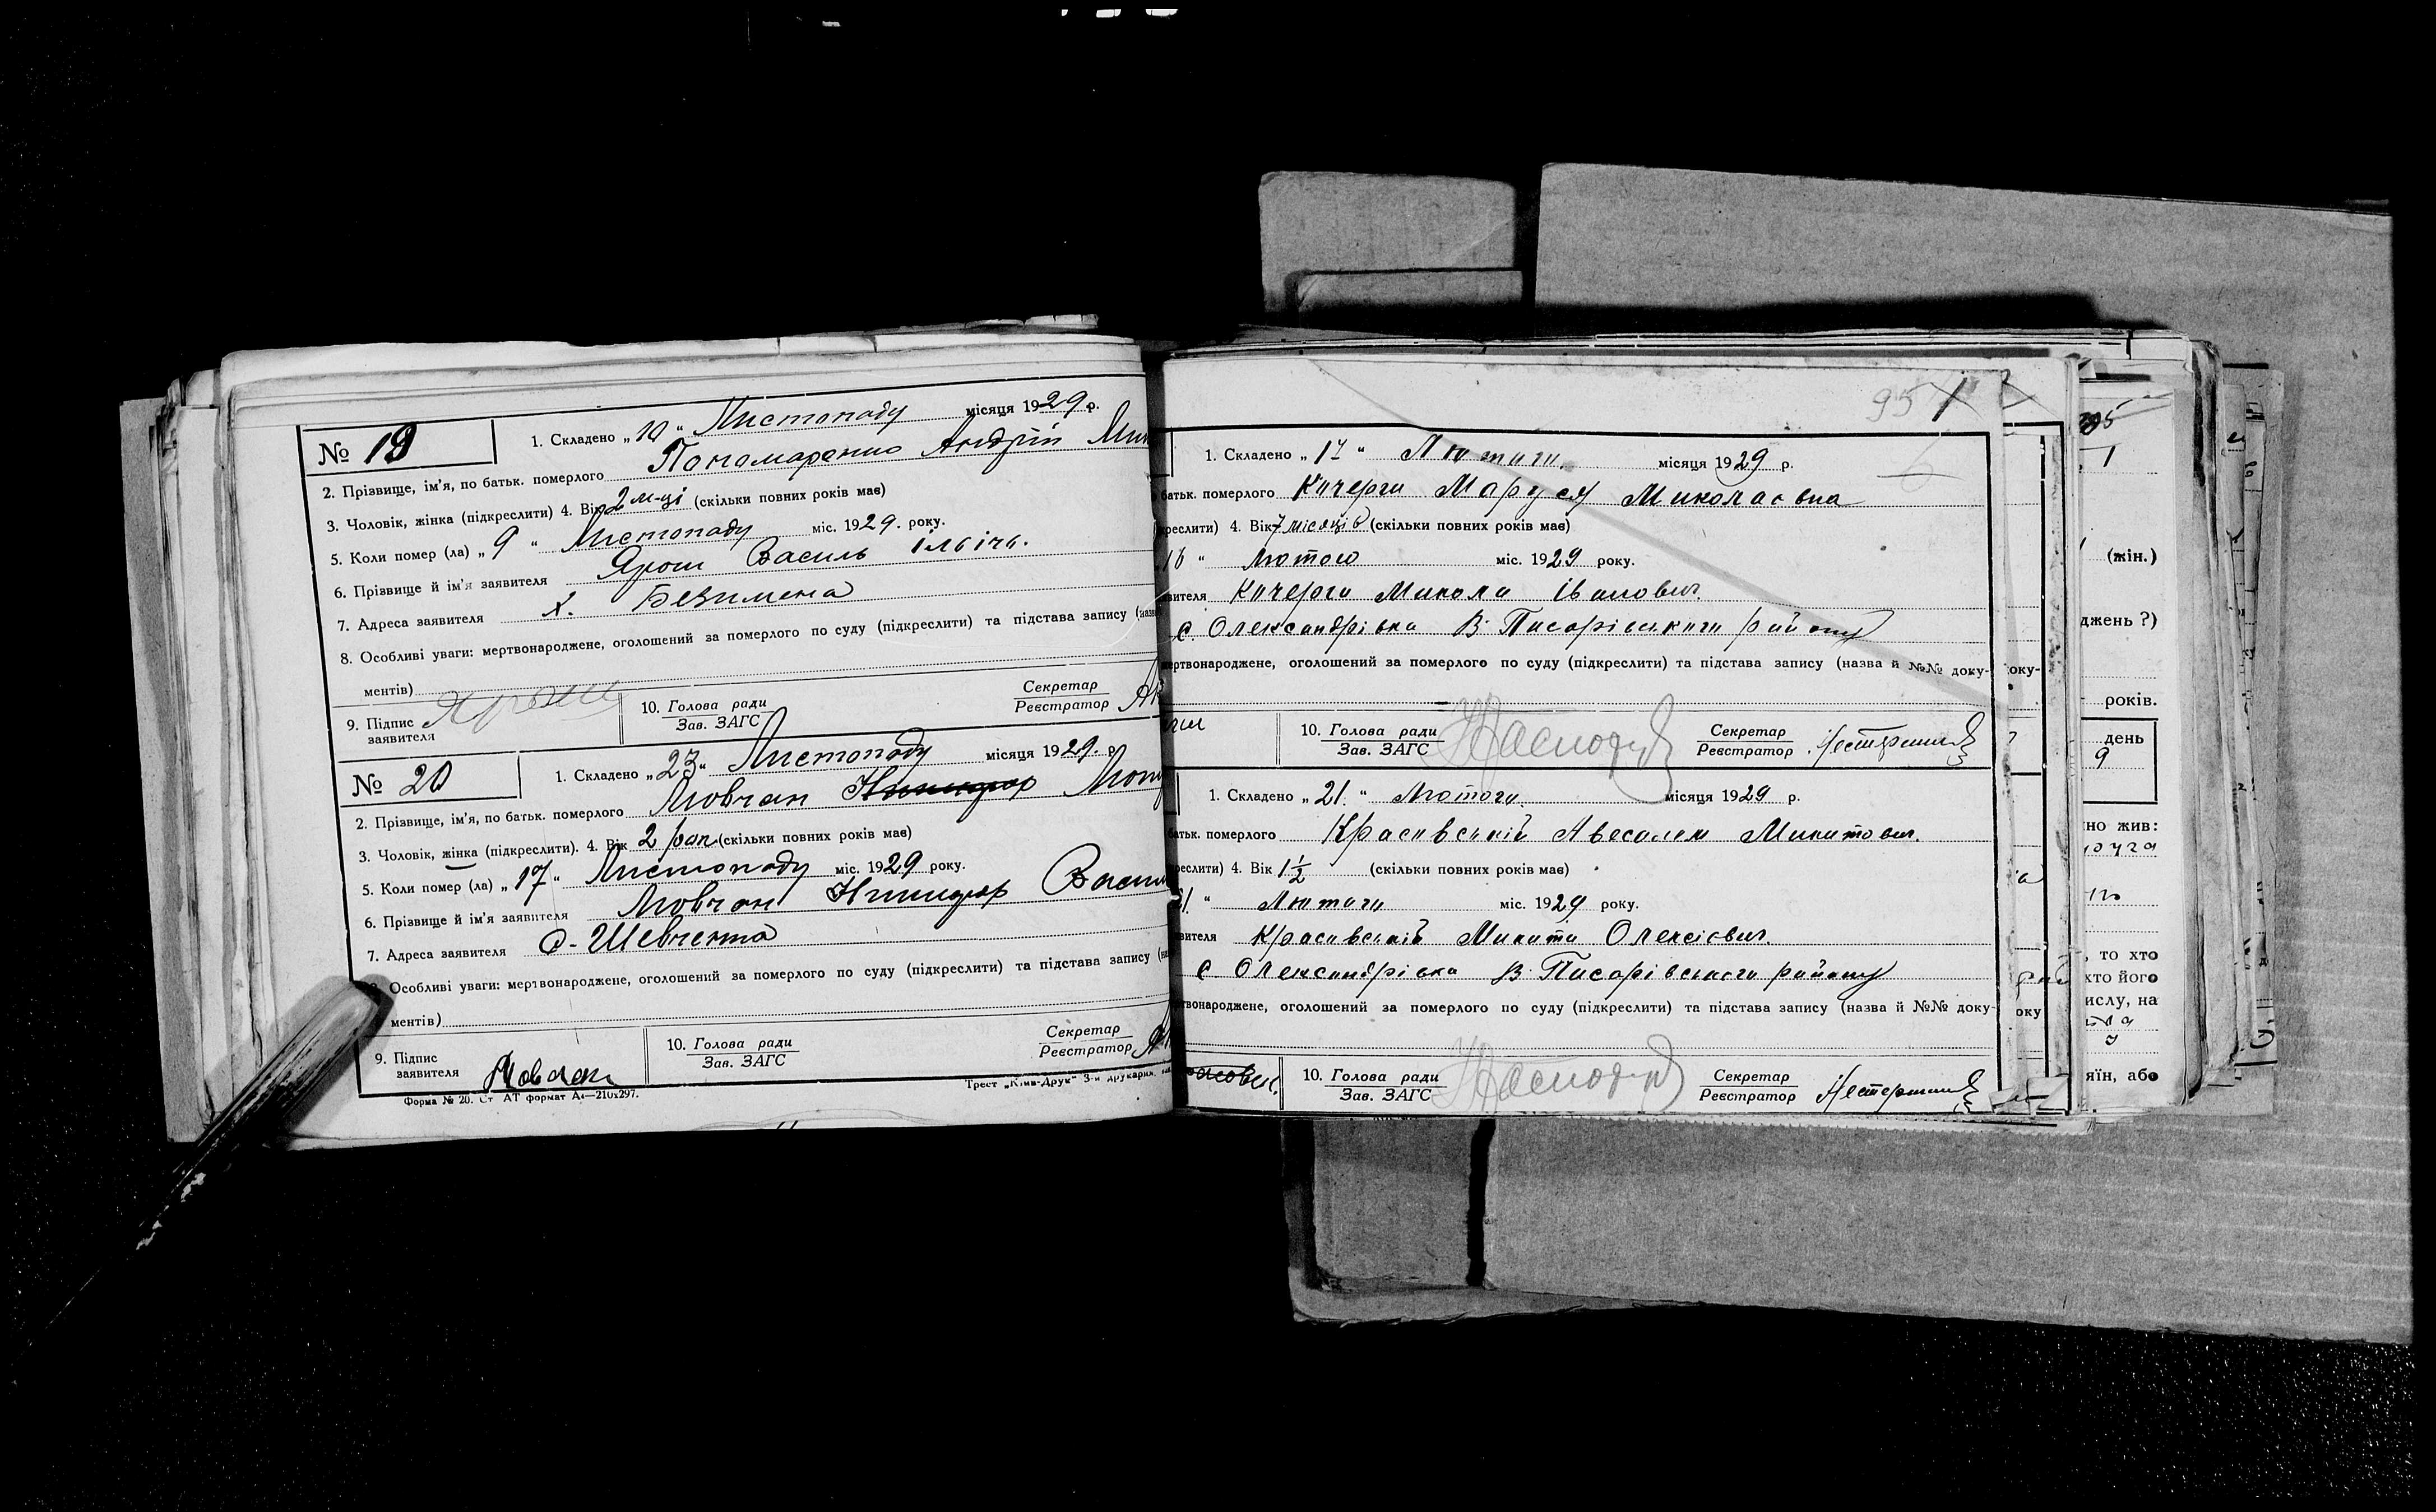 № 19
1. Складено „10“ Листопаду місяця 1929 р.
2. Прізвище, ім'я, по батьк. померлого Пономаренко Андрій
3. Чоловік, жінка (підкреслити) 4. Вік 2 м-ці (скільки повних років має)
5. Коли помер (ла) „9“ Листопаду міс. 1929. року.
6. Прізвище й ім'я заявителя Ярош Василь Ілвічь.
7. Адреса заявителя х. Безимена
8. Особливі уваги: мертвонароджене, оголошений за померлого по суду (підкреслити) та підстава запису
ментів)
9. Підпис заявителя Ярош
10. Голова ради
Зав. ЗАГС
Секретар
Реєстратор
№ 20
1. Складено „23“ Листопаду місяця 1929. р
2. Прізвище, ім'я, по батьк. померлого Мовчан
3. Чоловік, жінка (підкреслити). 4. Вік 2 рок (скільки повних років має)
5. Коли помер (ла) „17“ Листопаду міс. 1929 року.
6. Прізвище й ім'я заявителя Мовчан
7. Адреса заявителя с. Шевченка
Особливі уваги: мертвонароджене, оголошений за померлого по суду (підкреслити) та підстава запису
ментів)
9. Підпис заявителя Мовчан
10. Голова ради
Зав. ЗАГС
Секретар
Реєстратор
Форма № 20. Ст АТ формат А4—210х297.
Трест „Київ-Друк“ 3-я друкарня,
95
1. Складено „17“ Лютого. місяця 1929 р.
батьк. померлого Кочерга Маруся Миколаєвна
4. Вік 7 місяців (скільки повних років має)
16 “ Лютого міс. 1929 року.
Кочерга Микола Іванович.
с Олександрівка В-Писарівського району
мертвонароджене, оголошений за померлого по суду (підкреслити) та підстава запису (назва й №№ доку-
10. Голова ради
Зав. ЗАГС
Секретар
Реєстратор
1. Складено „21.“ Лютого. місяця 1929 р.
батьк. померлого Красивський Авесалем Микитович.
4. Вік 1½ (скільки повних років має)
“ Лютого міс. 1929 року.
Красивський Микита Олексієвич.
с Олександрівка В-Писарівського району
твонароджене, оголошений за померлого по суду (підкреслити) та підстава запису (назва й №№ доку-
10. Голова ради
Зав. ЗАГС
Секретар
Реєстратор
(жін.)
джень ?)
років.
день
9
но жив:
, то хто
хто його
ислу, на
яїн, або